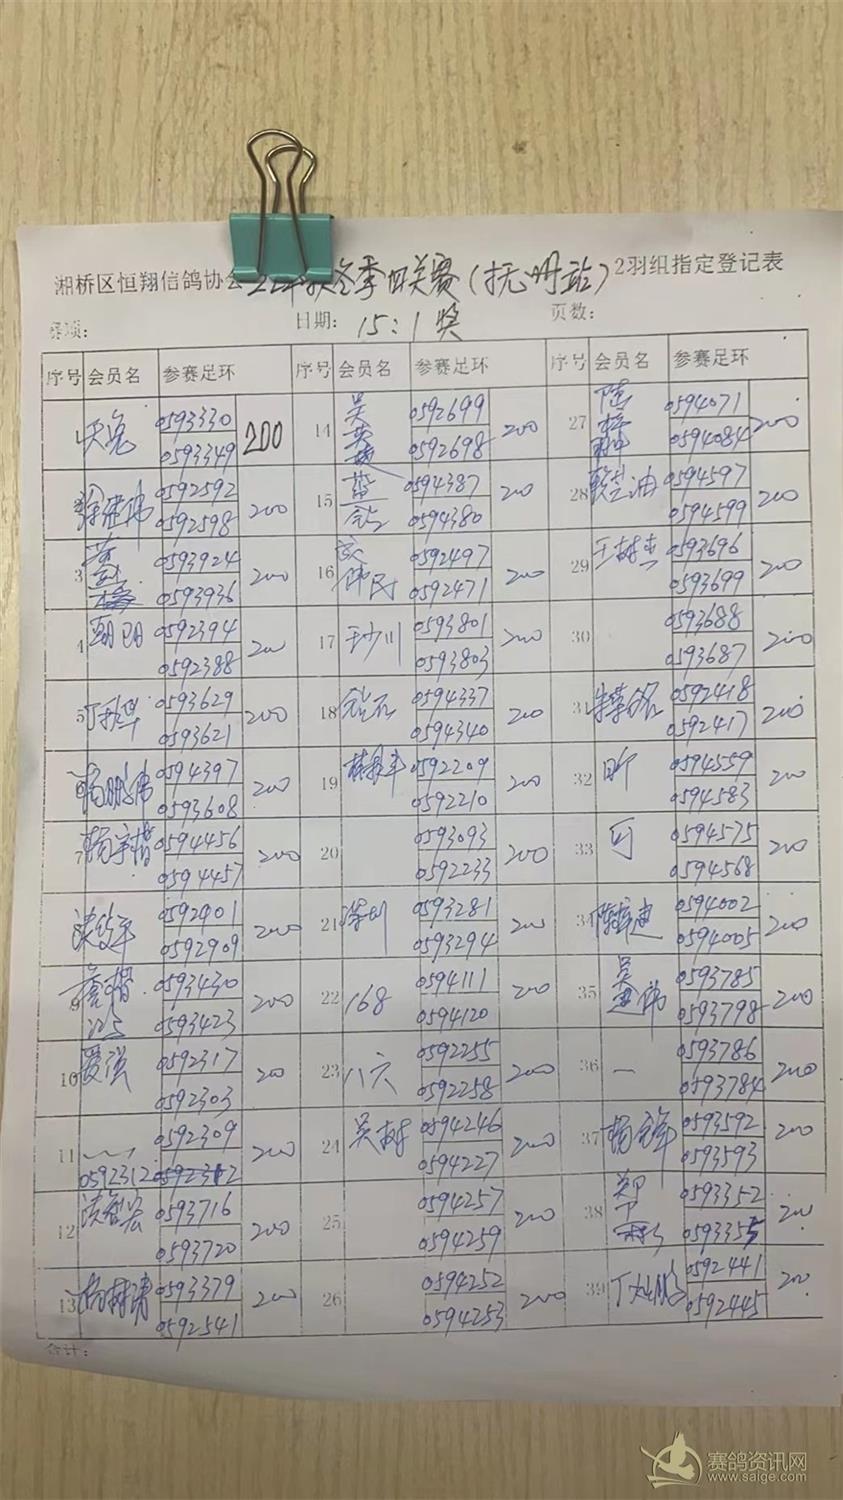 湘桥区恒翔信鸽协会 22年秋冬季四关赛(抚州站) 2羽组指定登记表
赛项： 日期： 15:1奖 页数：
序号 会员名 参赛足环 序号 会员名 参赛足环 序号 会员名 参赛足环
0593330 0593349 200 14 吴 0592699 0592698 200 27 陈 0594071 0594084 200
0592592 0592598 200 15 0594387 0594380 200 28 0594597 0594599 200
3 0593924 0593936 200 16 0592497 0592471 200 29 王树 0593696 0593699 200
4 朝阳 0592394 0592388 200 17 王少川 0593801 0593803 200 30 0593688 0593687 200
5 0593629 0593621 200 18 0594337 0594340 200 31 0592418 0592417 200
杨鹏伟 0594397 0593608 200 19 0592209 0592210 200 32 0594559 0594583 200
7 杨 0594456 0594457 200 20 0593093 0592233 200 33 0594575 0594568 200
0592901 0592909 200 21 深圳 0593281 0593294 200 34 陈 0594002 0594005 200
9 0593430 0593423 200 22 168 0594111 0594120 200 35 吴 伟 0593785 0593798 200
10 爱强 0592317 0592303 200 23 八六 0592255 0592258 200 36 一 0593786 0593784 200
11 0592309 0592312 0592312 200 24 吴树 0594246 0594227 200 37 杨 0593592 0593593 200
12 洪智宏 0593716 0593720 200 25 0594257 0594259 200 38 郑 0593352 0593355 200
13 杨树 0593379 0592541 200 26 0594252 0594253 200 39 丁灿鹏 0592441 0592445 200
合计：
赛鸽资讯网
www.saige.com